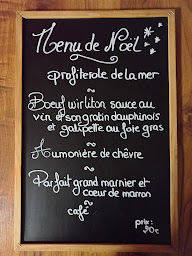 Menu de Noël
profiterole de la mer
~
Boeuf wirliton sauce au
vin et son gratin dauphinois
et galipette au foie gras
~
Aumonière de chèvre
~
Parfait grand marnier et
coeur de marron
~
café
prix:
90€